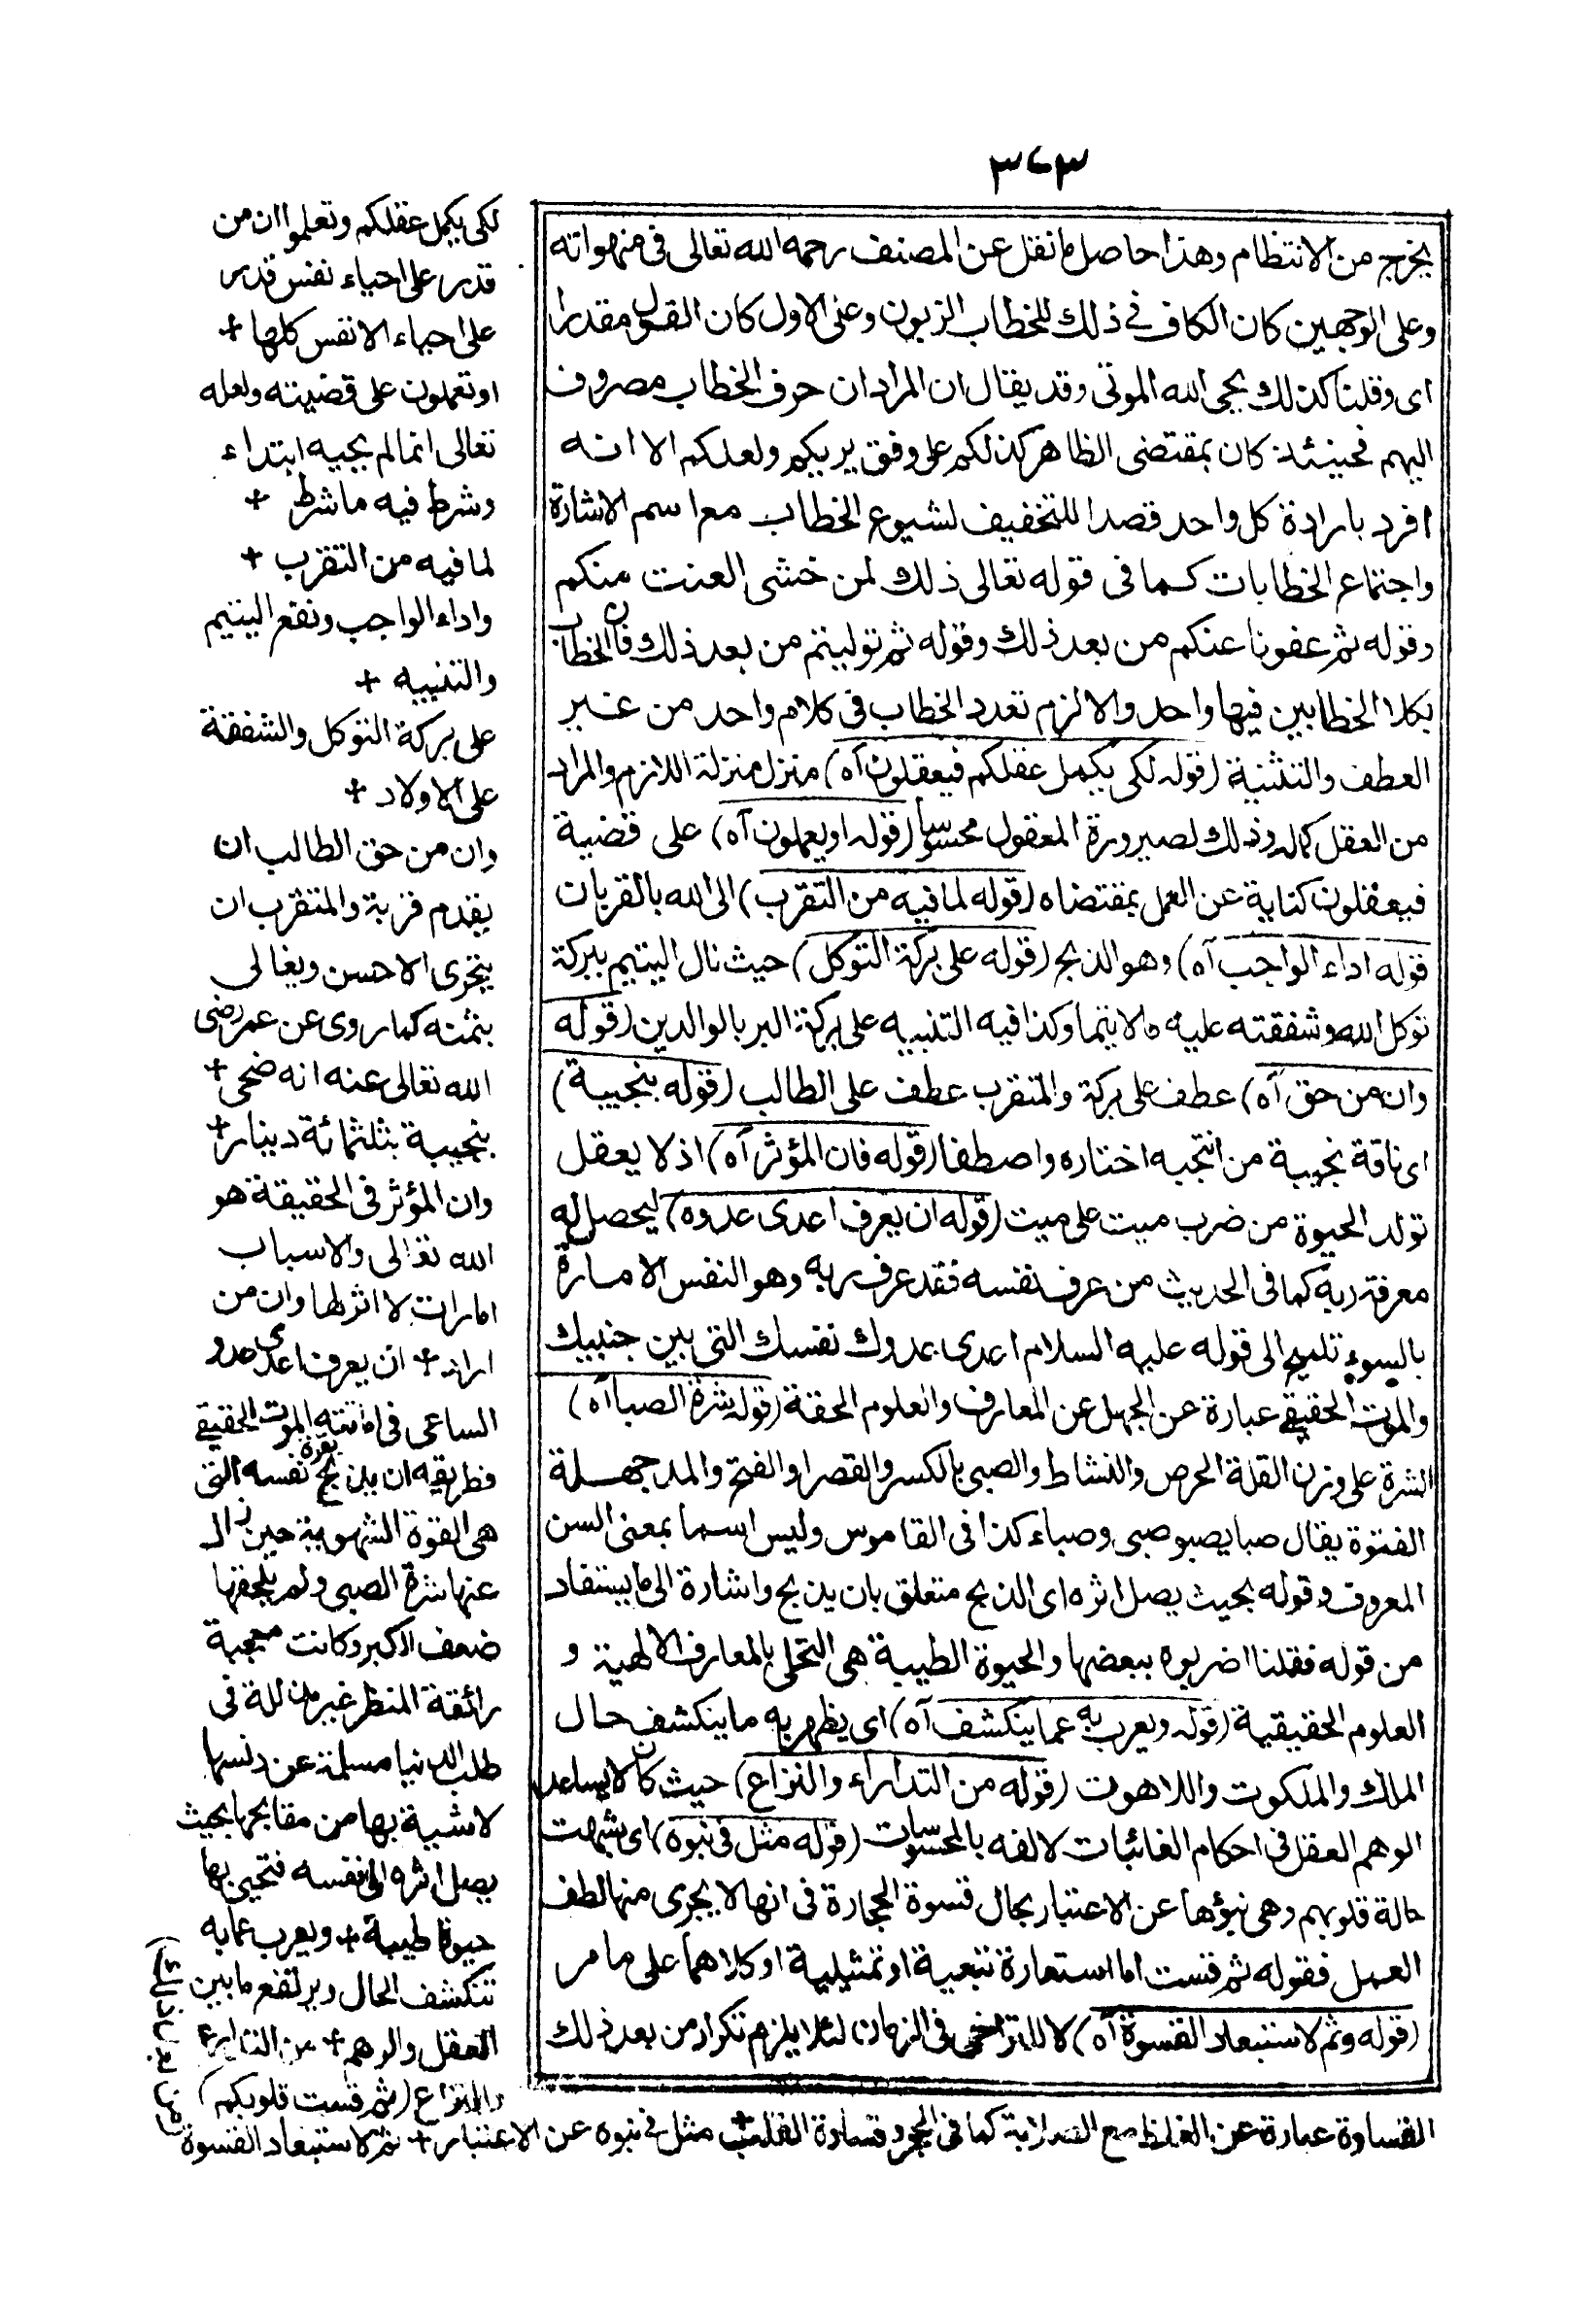 ٣٦٣
يخرج من الانتظام وهذا حاصل ما نقل عن المصنف رحمه الله تعالى فى منهواته
وعلى الوجهين كان الكاف فى ذلك للخطاب الزبون وعلى الاول كان القول مقدرا
اى وقلنا كذلك يحى الله الموتى وقد يقال ان المراد ان حرف الخطاب مصروف
اليهم فحينئذ كان بمقتضى الظاهر كذلكم على وفق يريكم ولعلكم الا انه
افرد بارادة كل واحد قصدا للتخفيف لشيوع الخطاب مع اسم الاشارة
واجتماع الخطابات كما فى قوله تعالى ذلك لمن خشى العنت منكم
وقوله ثم عفونا عنكم من بعد ذلك وقوله ثم توليتم من بعد ذلك فان الخطاب
بكلا الخطابين فيها واحد والا لزم تعدد الخطاب فى كلام واحد من غير
العطف والتثنية (قوله لكى يكمل عقلكم فيعقلون آه) منزل منزلة اللازم والمراد
من العقل كماله وذلك لصيرورة المعقول محسوسا (قوله او يعملون آه) على قضية
فيعقلون كناية عن العمل بمقتضاه (قوله لما فيه من التقرب) الى الله بالقربان
قوله اداء الواجب آه) وهو الذبح (قوله على بركة التوكل) حيث نال اليتيم ببركة
توكل الله وشفقته عليه مالا يتما وكذا فيه التنبيه على بركة البر بالوالدين (قوله
وان من حق آه) عطف على بركة والمتقرب عطف على الطالب (قوله بنجيبة)
اى ناقة نجيبة من انتجبه اختاره واصطفا (قوله فان المؤثر آه) اذ لا يعقل
تولد الحيوة من ضرب ميت على ميت (قوله ان يعرف اعدى عدوه) ليحصل له
معرفة ربه كما فى الحديث من عرف نفسه فقد عرف ربه وهو النفس الامارة
بالسوء تلميح الى قوله عليه السلام اعدى عدوك نفسك التى بين جنبيك
والموت الحقيقے عبارة عن الجهل عن المعارف والعلوم الحقة (قوله شرة الصبا آه)
الشرة على وزن القلة الحرص والنشاط والصبى بالكسر والقصر او الفتح والمد جهلة
الفتوة يقال صبا يصبو صبى وصباء كذا فى القاموس وليس اسما بمعنى السن
المعروف وقوله بحيث يصل اثره اى الذبح متعلق بان يذبح واشارة الى ما يستفاد
من قوله فقلنا اضربوه ببعضها والحيوة الطيبة هى التحلى بالمعارف الالهية و
العلوم الحقيقية (قوله ويعرب به عما ينكشف آه) اى يظهر به ما ينكشف حال
الملك والملكوت واللاهوت (قوله من التداراء والنزاع) حيث كان لا يساعد
الوهم العقل فى احكام الغائبات لالفه بالمحسوسات (قوله مثل فى نبوه) اى شبهت
حالة قلوبهم وهى نبؤها عن الاعتبار بحال قسوة الحجارة فى انها لا يجرى منها لطف
العمل فقوله ثم قست اما استعارة تبعية او تمثيلية او كلاهما على ما مر
(قوله وثم لاستبعاد القسوة آه) لا للتراخى فى الزمان لئلا يلزم تكرار من بعد ذلك
لكى يكمل عقلكم وتعلموا ان من
قدر على احياء نفس قدر
على احياء الانفس كلها +
او تعملون على قضيته ولعله
تعالى انما لم يحييه ابتداء
وشرط فيه ما شرط +
لما فيه من التقرب +
واداء الواجب ونفع اليتيم
والتنبيه +
على بركة التوكل والشفقة
على الاولاد +
وان من حق الطالب ان
يقدم قربة والمتقرب ان
يتحرى الاحسن ويغالى
بثمنه كما روى عن عمر رضى
الله تعالى عنه انه ضحى +
بنجيبة بثلثمائة دينار +
وان المؤثر فى الحقيقة هو
الله تعالى والاسباب
امارات لا اثر لها وان من
اراد + ان يعرف اعدى عدوه
الساعى فى اماتته الموت الحقيقے
فطريقه ان يذبح بقرة نفسه التى
هى القوة الشهوية حين زال
عنها شرة الصبى ولم يلحقها
ضعف الكبر وكانت معجبة
رائقة المنظر غير مذللة فى
طلب الدنيا مسلمة عن دنسها
لا شية بها من مقابحها بحيث
يصل اثره الى نفسه فتحيى بها
حيوة طيبة + ويعرب عما به
تنكشف الحال ويرتفع ما بين
العقل والوهم + من التدارء
والنزاع (ثم قست قلوبكم)
القساوة عبارة عن الغلظ مع الصلابة كما فى الحجر وقساوة القلب + مثل فى نبوه عن الاعتبار + ثم لاستبعاد القسوة
(من بعد ذلك)